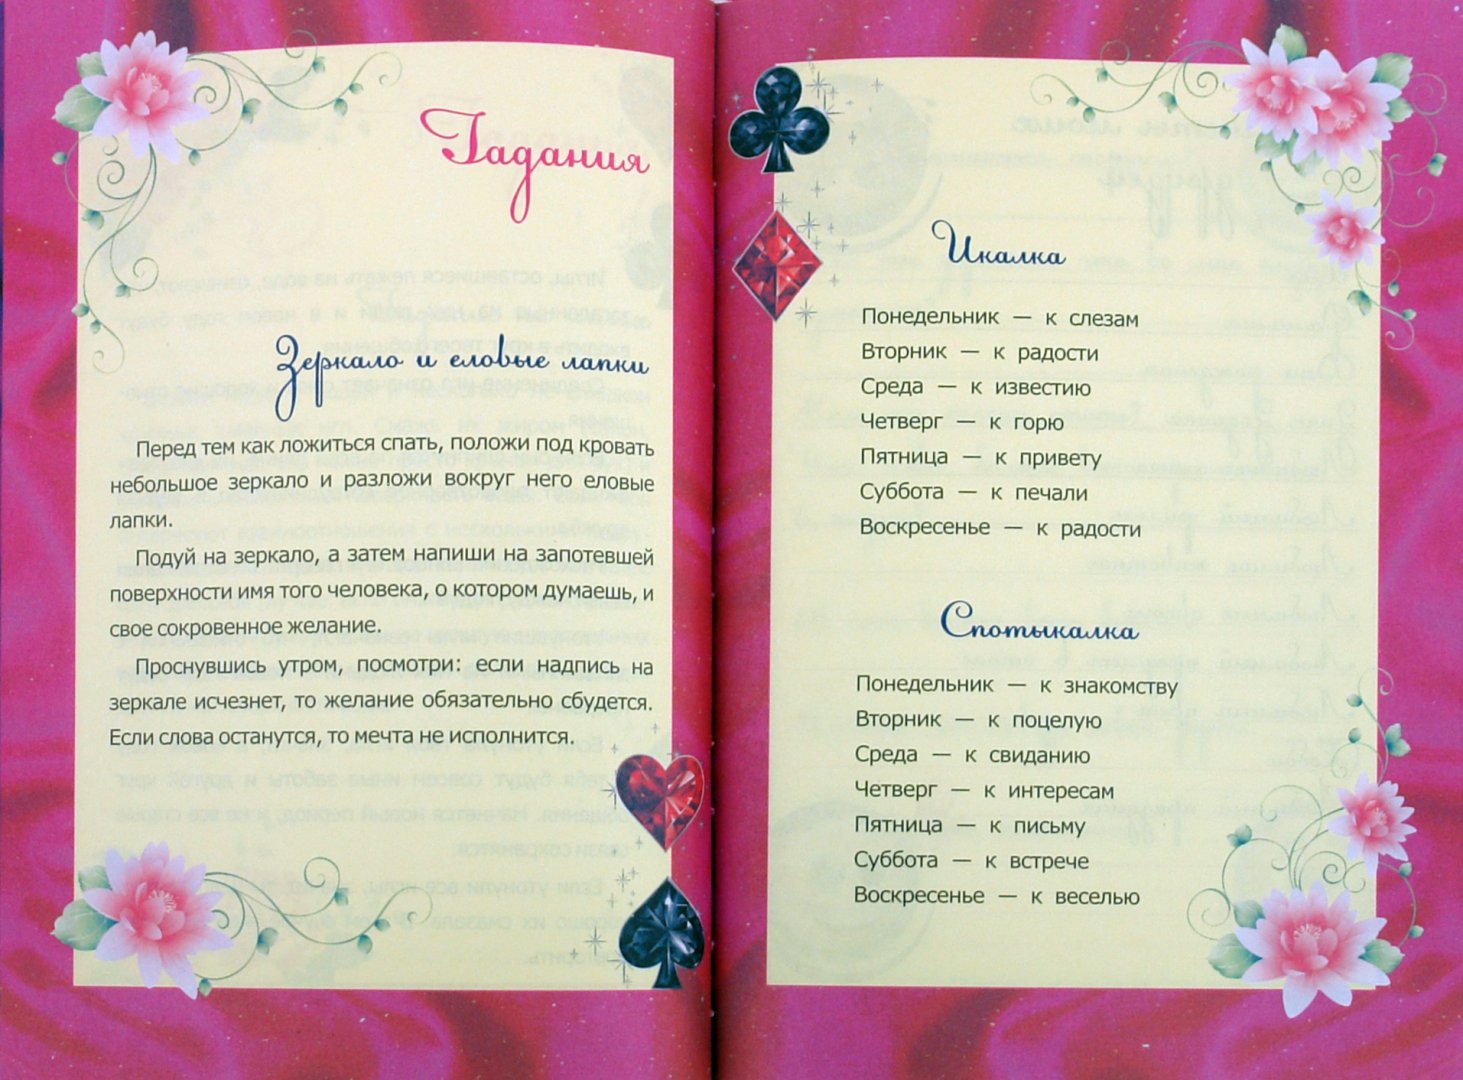 Гадания
Зеркало и еловые лапки
Перед тем как ложиться спать, положи под кровать
небольшое зеркало и разложи вокруг него еловые
лапки.
Подуй на зеркало, а затем напиши на запотевшей
поверхности имя того человека, о котором думаешь, и
свое сокровенное желание.
Проснувшись утром, посмотри: если надпись на
зеркале исчезнет, то желание обязательно сбудется.
Если слова останутся, то мечта не исполнится.
Икалка
Понедельник — к слезам
Вторник — к радости
Среда — к известию
Четверг — к горю
Пятница — к привету
Суббота — к печали
Воскресенье — к радости
Спотыкалка
Понедельник — к знакомству
Вторник — к поцелую
Среда — к свиданию
Четверг — к интересам
Пятница — к письму
Суббота — к встрече
Воскресенье — к веселью